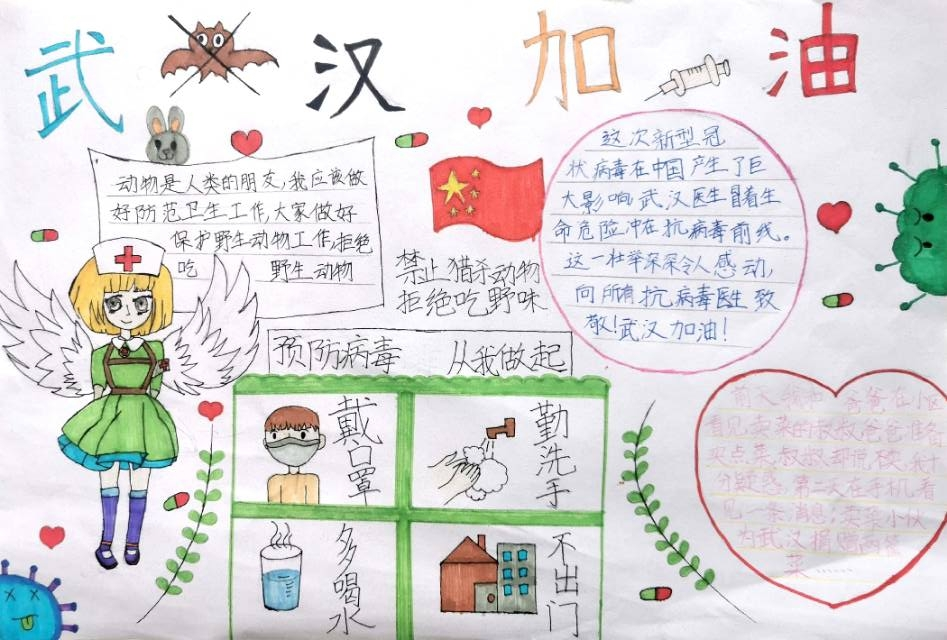 武汉加油
动物是人类的朋友,我应该做
好防范卫生工作,大家做好
保护野生动物工作,拒绝
吃 野生动物
禁止猎杀动物
拒绝吃野味
这次新型冠
状病毒在中国产生了巨
大影响,武汉医生冒着生
命危险冲在抗病毒前线。
这一壮举深深令人感动,
向所有抗病毒医生致
敬!武汉加油!
预防病毒 从我做起
戴口罩
勤洗手
多喝水
不出门
前天 爸爸在小区
看见卖菜的叔叔爸爸
买点菜叔叔却说
分疑惑。第二天在手机看
见一条消息:卖菜小伙
为武汉捐赠两
菜……